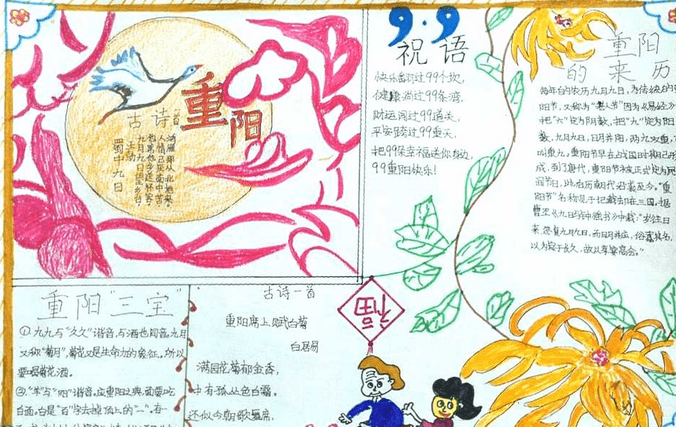 重阳
古诗一首
蜀中九日
王勃
九月九日望乡台
他席他乡送客杯
人情已厌南中苦
鸿雁那从北地来
9.9
祝语
快乐翻过99个坎,
健康淌过99条湾,
财运闯过99道关,
平安骑过99重天,
把99桑幸福送你身边,
99重阳快乐!
重阳
的来历
每年的农历九月九日,为传统的重
阳节,又称为"老人节"因为《易经》中
把"六"定为阴数,把"九"定为阳
数,九月九日,日月并阳,两九双重,
叫重九,重阳节早在战国时期已形
成,到了唐代,重阳节被正式定为民
间节日,此后历朝历代沿袭至今。"重
阳节"名称见于记载却在三国,据
曹丕《九日与钟繇书》中载:"岁往月
来,忽复九月九日,而日月并应,俗嘉其名,
以为宜于长久,故以享宴高会。"
重阳"三宝"
①九九与"久久"谐音,与酒也同音,九月
又称"菊月",菊花又是生命力的象征,所以
要喝菊花酒。
②"羊"与"阳"谐音。应重阳之典,面要吃
白面,白是"百"字去掉顶上的"一"。有一
古诗一首
重阳席上赋白菊
白居易
满园花菊郁金香,
中有孤丛色白霜。
还似今朝歌舞席,
福